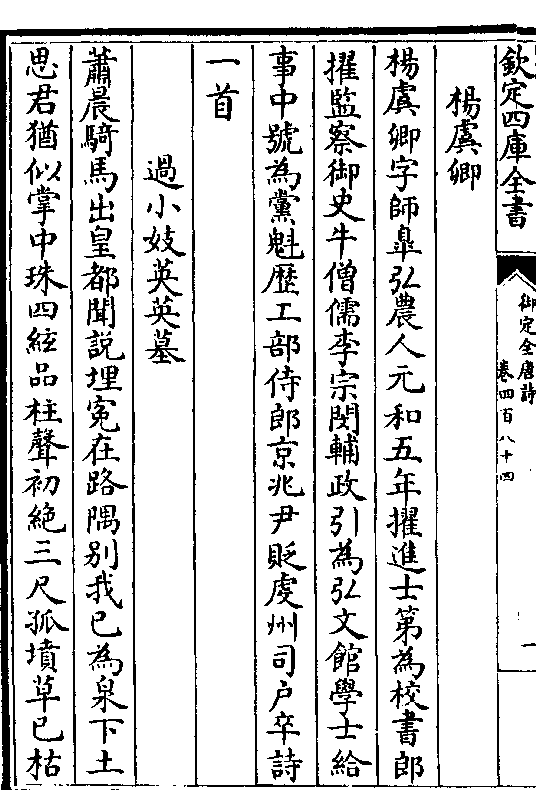 欽定四庫全書
御定全唐詩
卷四百八十四
一
楊虞卿
楊虞卿字師臯弘農人元和五年擢進士第為校書郎
擢監察御史牛僧儒李宗閔輔政引為弘文館學士給
事中號為黨魁歷工部侍郎京兆尹貶虔州司户卒詩
一首
過小妓英英墓
蕭晨騎馬出皇都聞説埋寃在路隅别我已為泉下土
思君猶似掌中珠四絃品柱聲初絶三尺孤墳草已枯